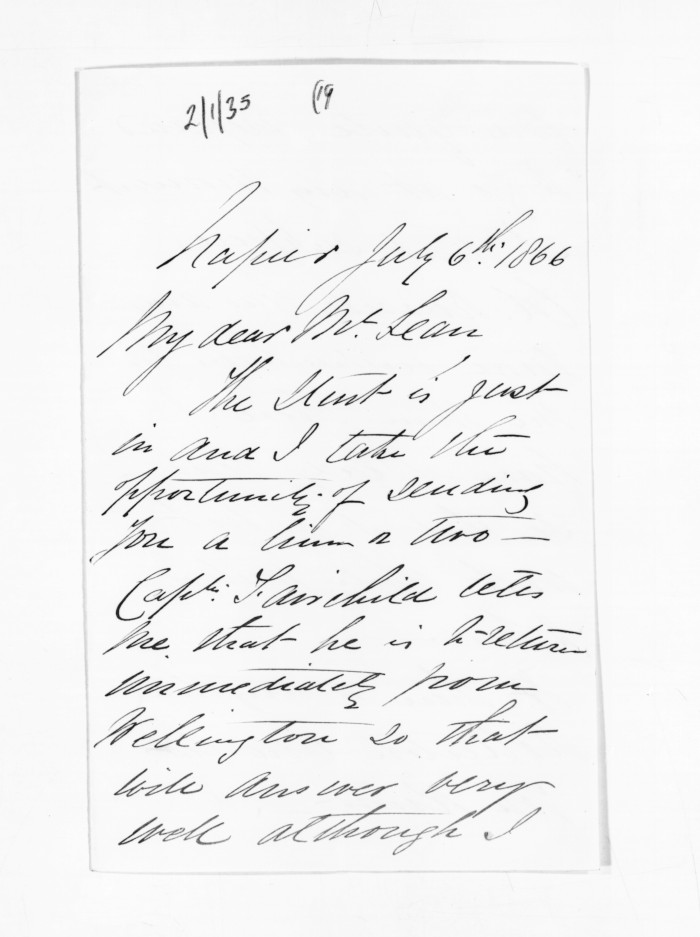 2/1/35 (19
Napier July 6th. 1866
My dear Mc Lean
The Sturt is just
in and I take the
opportunity of sending
you a line or two —
Captn. Fairchild tells
me that he is to return
immediately from
Wellington so that
will answer very
well although I